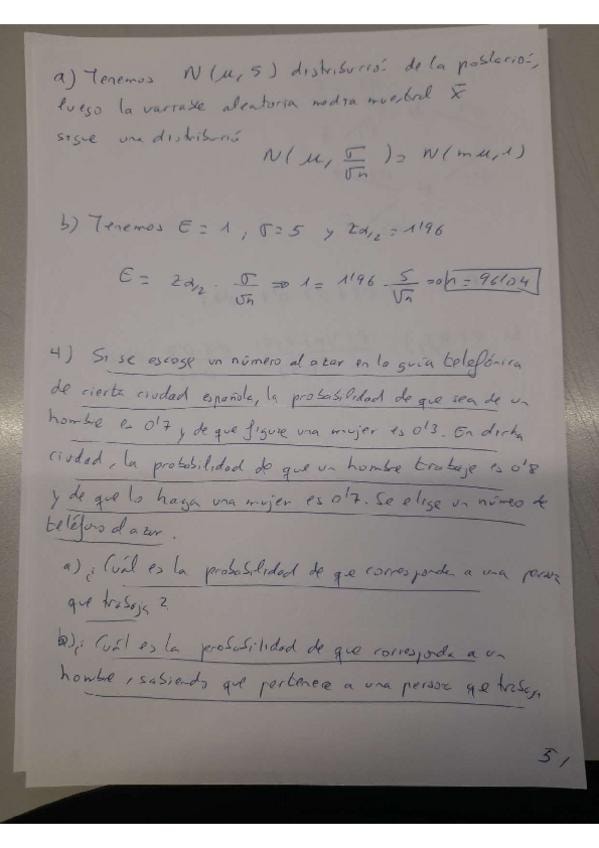 a) Tenemos N(μ, 5) distribució de la població,
luego la variable aleatoria media muestral x̄
sigue una distribució
N(μ, σ/√n) = N(mμ, 1)
b) Tenemos E = 1, σ = 5 y Zα/2 = 1'96
E = Zα/2 · σ/√n ⇒ 1 = 1'96 · 5/√n ⇒ n = 96'04
4) Si se escoge un número al azar en la guía telefónica
de cierta ciudad española, la probabilidad de que sea de un
hombre es 0'7 y de que figure una mujer es 0'3. En dicha
ciudad, la probabilidad de que un hombre trabaje es 0'8
y de que lo haga una mujer es 0'7. Se elige un número de
teléfono al azar.
a) ¿Cuál es la probabilidad de que corresponda a una persona
que trabaja?
b) ¿Cuál es la probabilidad de que corresponda a un
hombre, sabiendo que pertenece a una persona que trabaja
5,